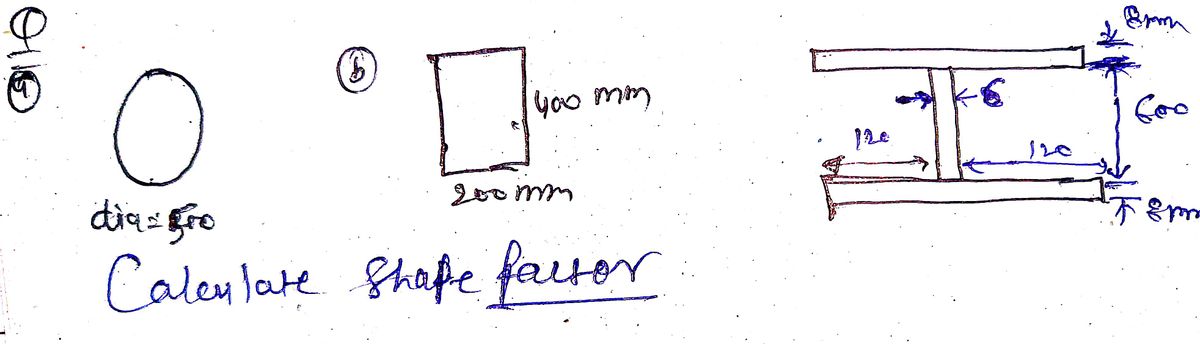 Q
(a)
dia = 500
(b)
400 mm
200 mm
8mm
6
600
120
120
8mm
Calculate Shape factor